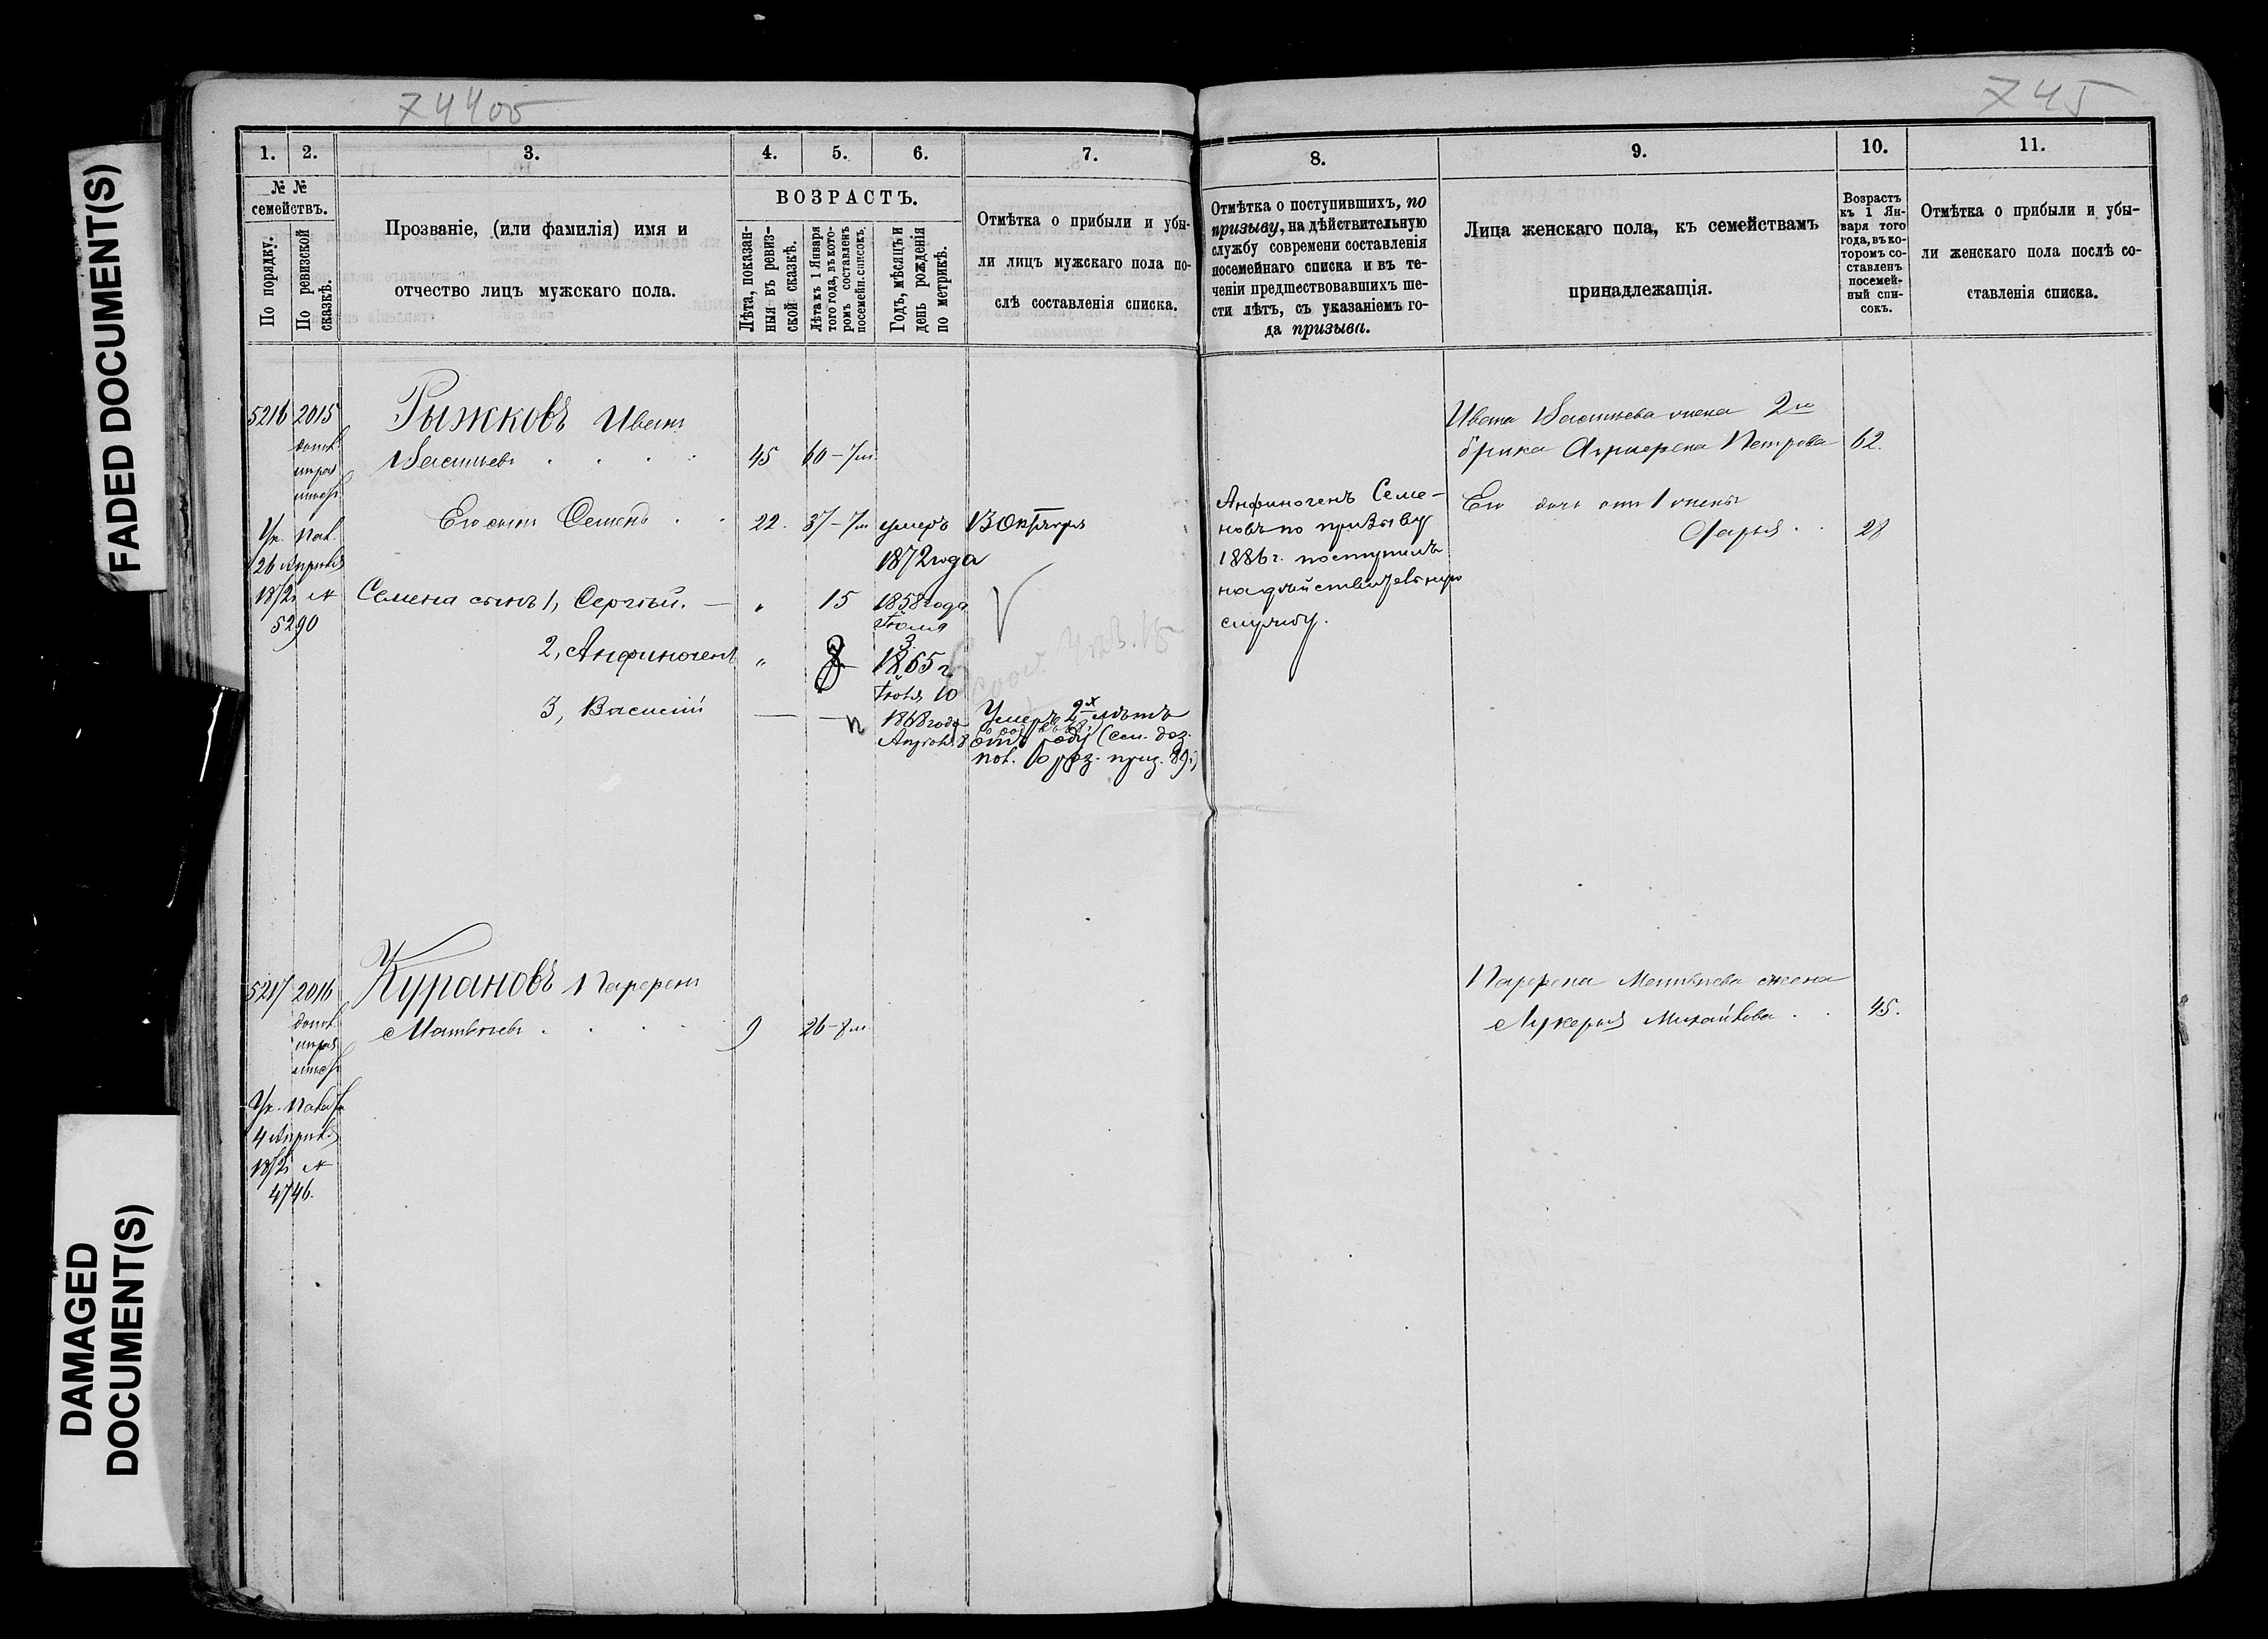 FADED DOCUMENT(S)
DAMAGED
DOCUMENT(S)
74400
1. 2. 3. 4. 5. 6. 7.
№ №
семействъ.
По порядку.
По ревизской
сказкѣ.
Прозваніе, (или фамилія) имя и
отчество лицъ мужскаго пола.
ВОЗРАСТЪ.
Лѣта, показан-
ныя въ ревиз-
ской сказкѣ.
Лѣта къ 1 Января
того года, въ кото-
ромъ составленъ
посемейн. списокъ.
Годъ, мѣсяцъ и
день рожденія
по метрикѣ.
Отмѣтка о прибыли и убы-
ли лицъ мужскаго пола по-
слѣ составленія списка.
5216 2015 Рыжковъ Иванъ
Васильевъ 45 60-7м
Его сынъ Семенъ 22. 37-7м умеръ 13 Октября
1872 года
26 Апрѣля
5290
Семена сынъ 1, Сергѣй. — „ 15 1858 года
Іюля
3
2, Анфиногенъ „ 8 1865 г.
Іюля 10
3, Василій — 1868 года
Умеръ 2х лѣтъ
5217 2016 Курановъ Парфенъ
Матвѣевъ 9 26-7м
4 Апрѣля
4746.
745
8. 9. 10. 11.
Отмѣтка о поступившихъ, по
призыву, на дѣйствительную
службу современи составленія
посемейнаго списка и въ те-
ченіи предшествовавшихъ ше-
сти лѣтъ, съ указаніемъ го-
да призыва.
Лица женскаго пола, къ семействамъ
принадлежащія.
Возрастъ
къ 1 Ян-
варя того
года, въ ко-
торомъ со-
ставленъ
посемей-
ный спи-
сокъ.
Отмѣтка о прибыли и убы-
ли женскаго пола послѣ со-
ставленія списка.
Анфиногенъ Семе-
новъ по призыву
1886 г. поступилъ
на дѣйствительную
службу.
Ивана Васильева жена 2го
брака Петрова 62.
Его дочь отъ 1 жены
Дарья 28
Парфена Матвѣева жена
Лукерья Михайлова 45.